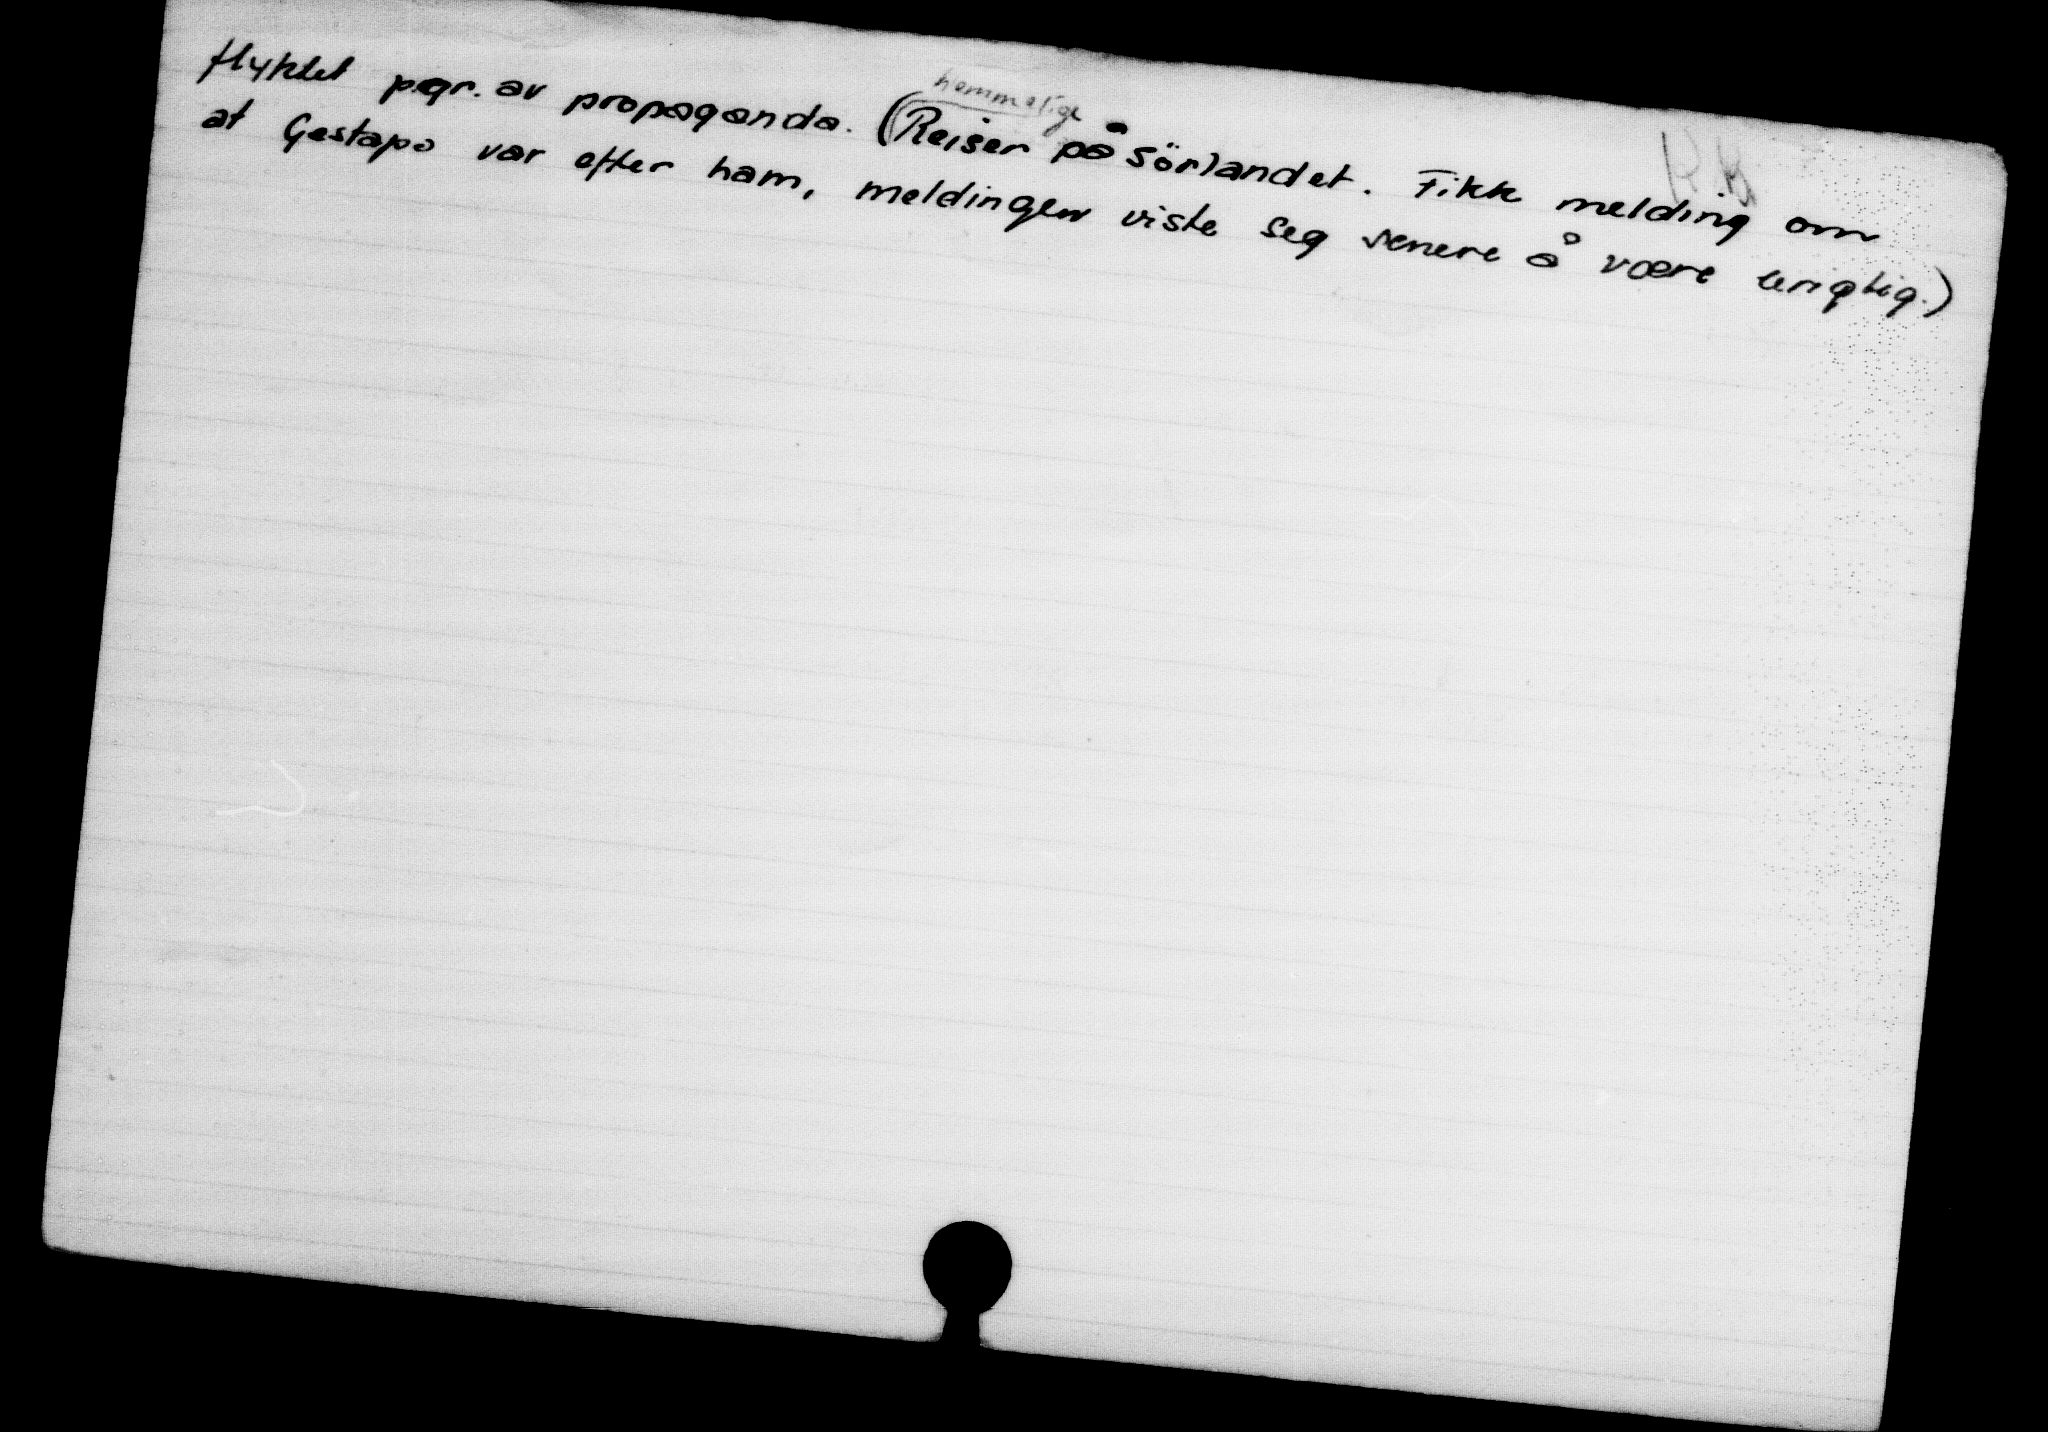 hemmelige
flyktet pgr. av propaganda. (Reiser på sörlandet. Fikk melding om
at Gestapo var efter ham, meldingen viste seg senere å være urigtig.)